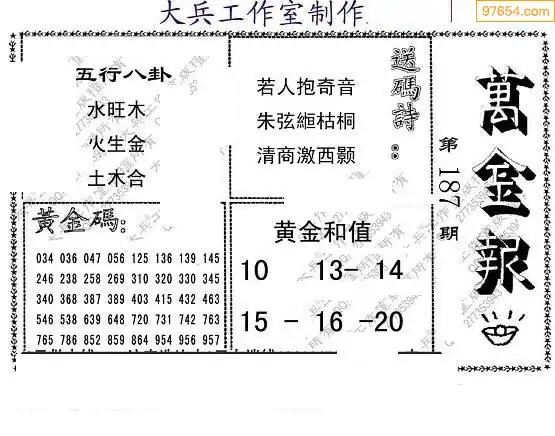 大兵工作室制作
97654.com
五行八卦
水旺木
火生金
土木合
送碼詩：
若人抱奇音
朱弦縆枯桐
清商激西颢
萬金報
第187期
黃金碼：
034 036 047 056 125 136 139 145
246 238 258 269 310 320 330 345
340 368 387 389 403 415 432 463
546 538 639 648 720 731 742 763
765 786 852 859 864 954 956 957
黄金和值
10 13- 14
15 - 16 -20